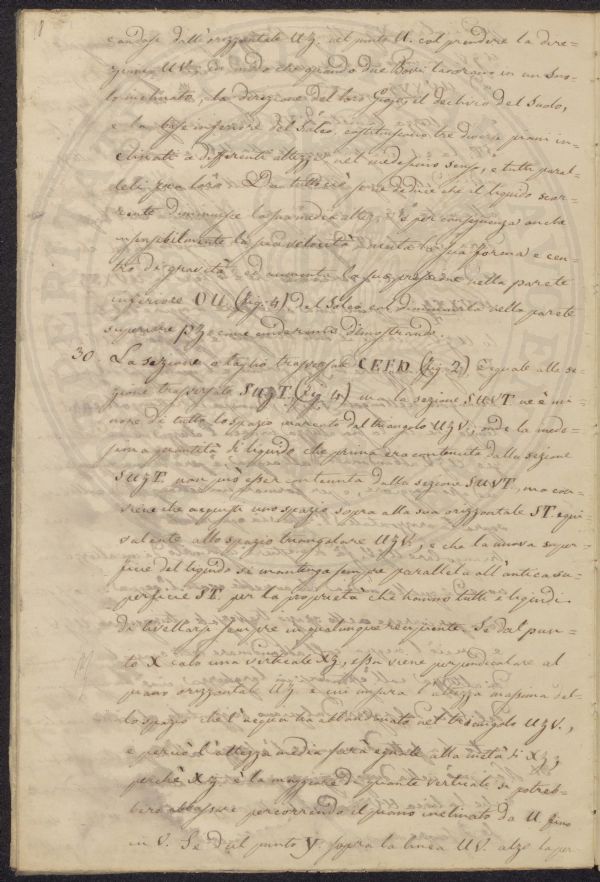 18
candosi dall'orizzontale UZ. nel punto U. col prendere la dire=
zione UV; in modo che quando due Bovi lavorano in un Suo=
lo inclinato, la direzione del loro Giogo, il declivio del Suolo,
e la base inferiore del Solco, costituiscono tre diversi piani in=
clinati a differenti altezze nel medesimo senso, e tutti paral=
leli fra loro. Da tutto ciò se ne deduce che il liquido scor=
rente diminuisce la sua media altezza, e per conseguenza anche
insensibilmente la sua velocità, muta la sua forma e cen=
tro di gravità, ed aumenta la sua pressione nella parete
inferiore OU. (fig: 4) del Solco, col diminuirla nella parete
superiore pZ, come anderemo dimostrando.
30. La sezione o taglio trasversale CEFD. (fig: 2) è eguale alla se=
zione trasversale SUZT. (fig. 4) ma la sezione SUVT ne è mi=
nore di tutto lo spazio marcato dal triangolo UZV, onde la mede=
sima quantità di liquido che prima era contenuta dalla sezione
SUZT. non può esser contenuta dalla sezione SUVT, ma con=
viene che acquisti uno spazio sopra alla sua orizzontale ST. equi=
valente allo spazio triangolare UZV, e che la nuova super=
ficie del liquido si mantenga sempre parallela all'antica su=
perficie ST. per la proprietà che hanno tutti i liquidi
di livellarsi sempre in qualunque recipiente. Se dal pun=
to X calo una verticale XZ, essa viene perpendicolare al
piano orizzontale UZ e mi misura l'altezza massima del=
lo spazio che l'acqua ha abbandonato nel triangolo UZV.,
e perciò l'altezza media sarà eguale alla metà di XZ;
perchè XZ è la maggiore di quante verticali si potreb=
bero abbassare percorrendo il piano inclinato da U fino
in V. Se dal punto Y sopra la linea UV. alzo la per